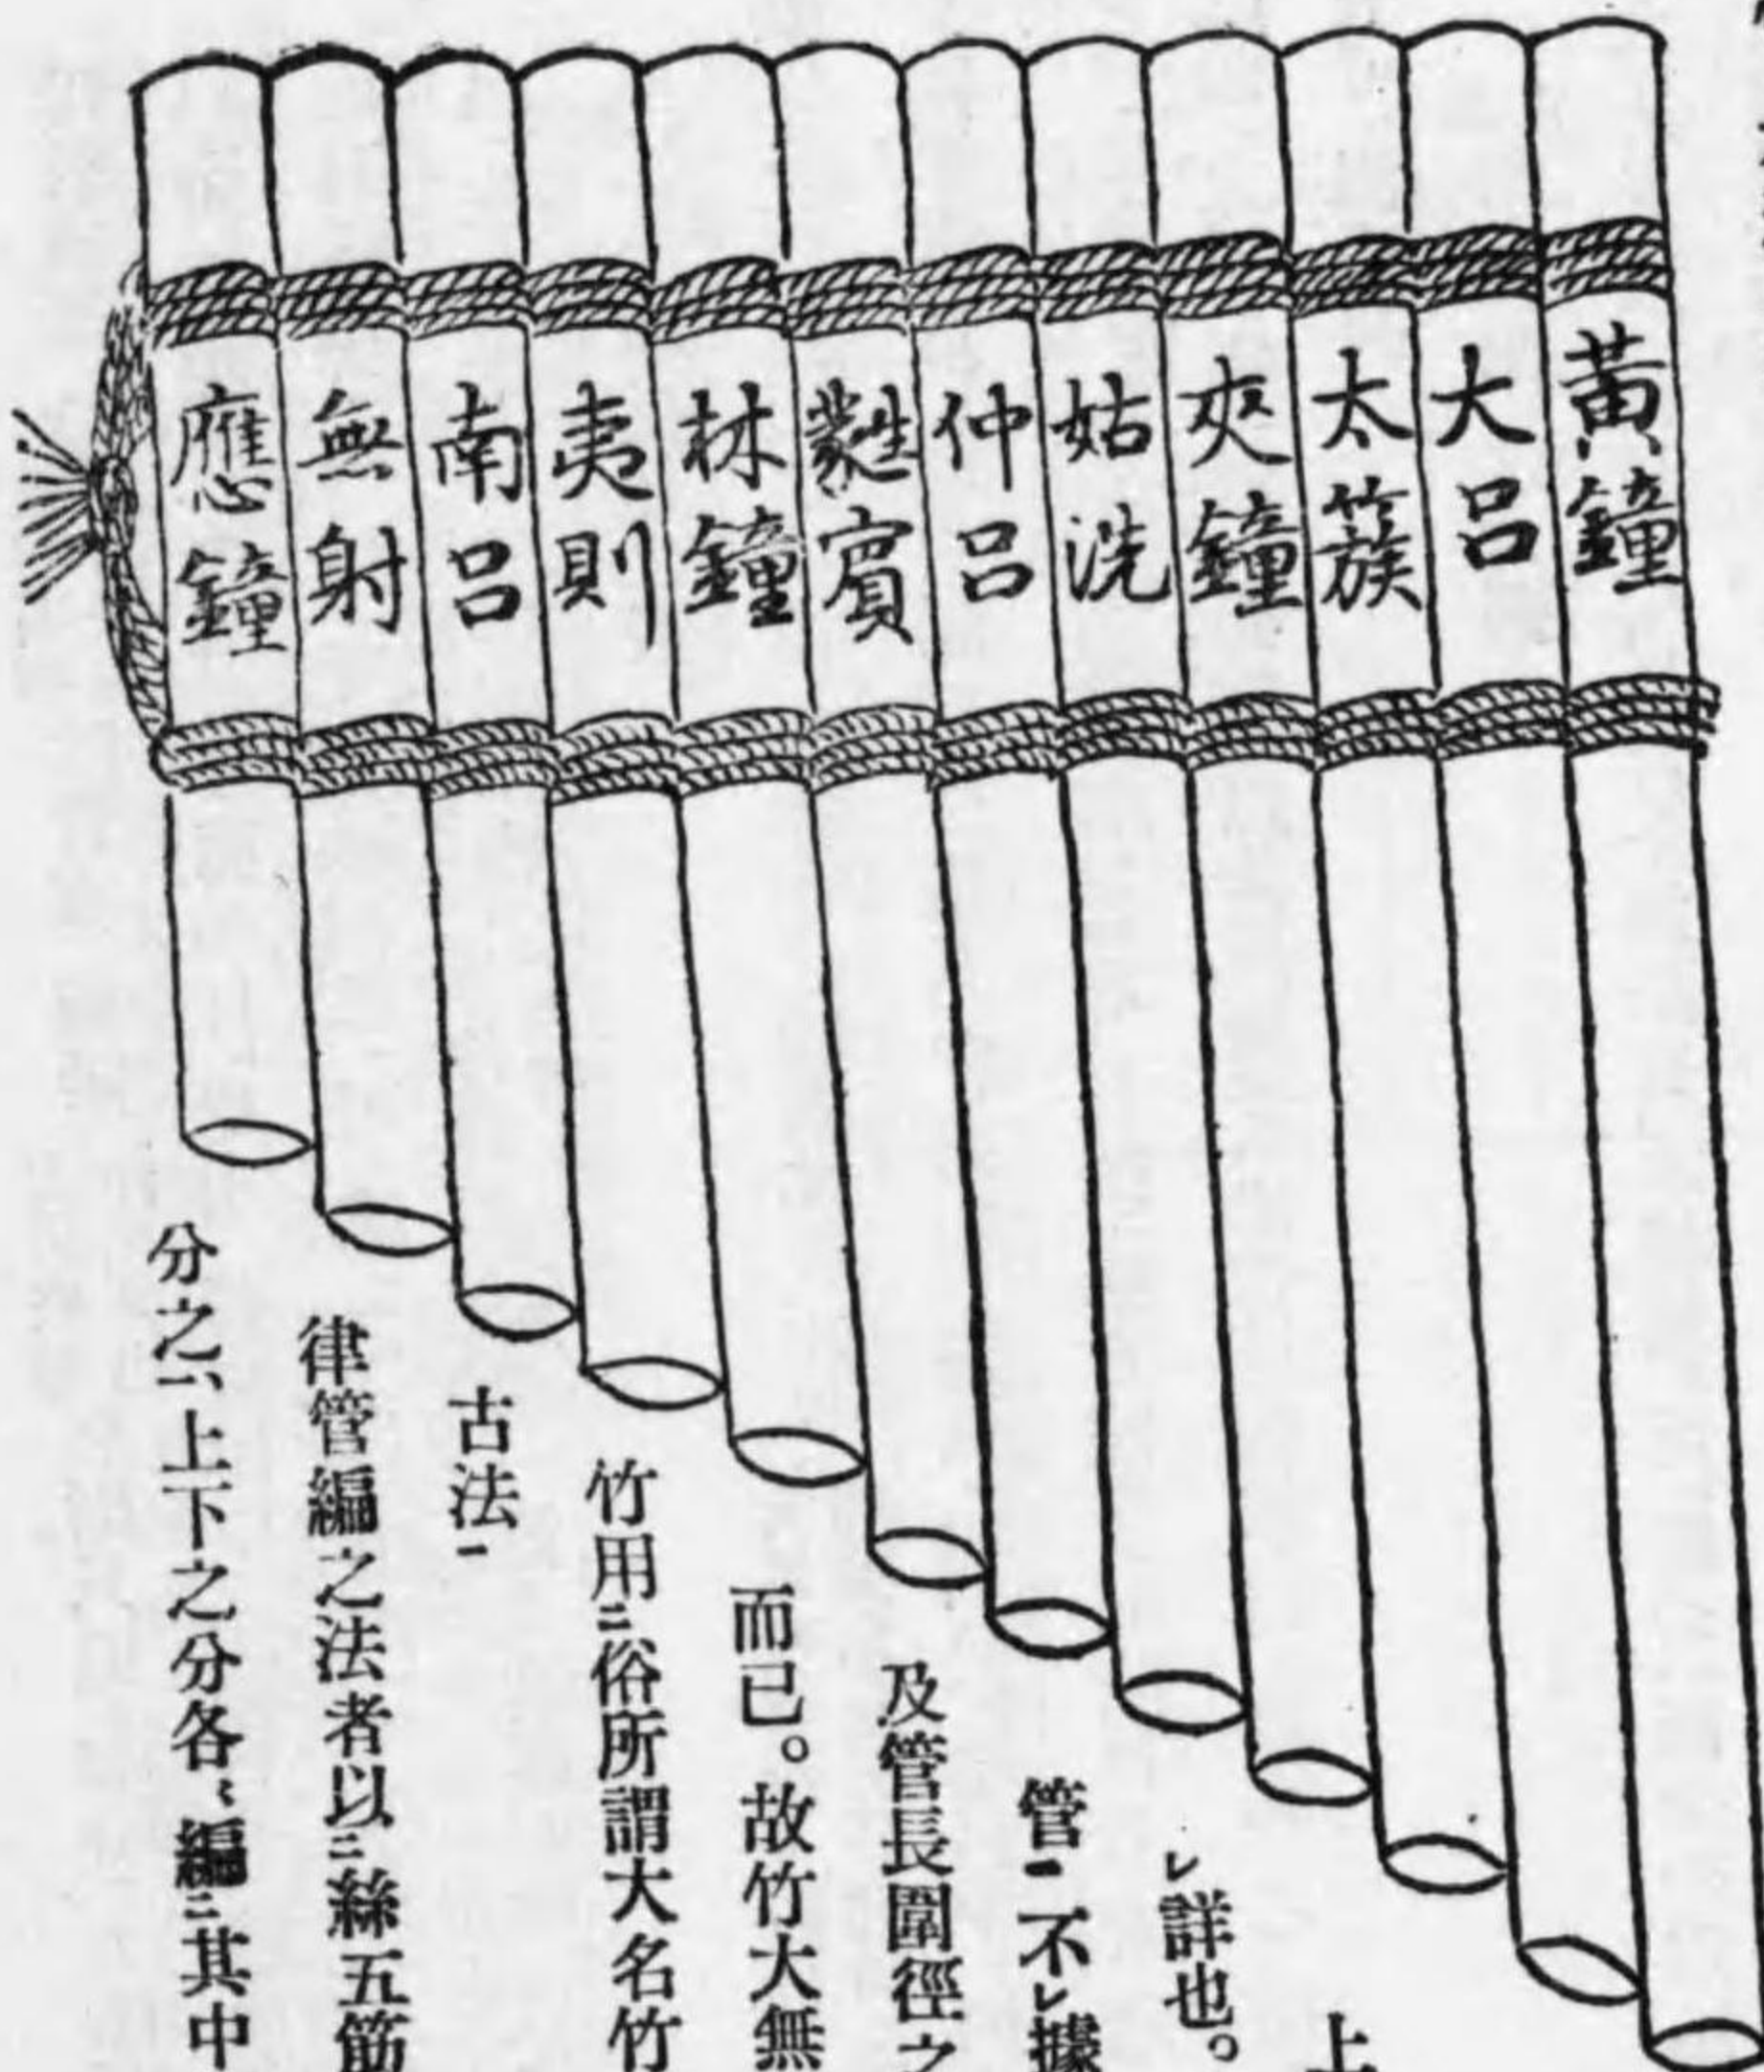 黃鐘
大呂
太簇
夾鐘
姑洗
仲呂
蕤賓
林鐘
夷則
南呂
無射
應鐘
上
レ詳也。
管一不レ據
及管長圍徑之
而已。故竹大無
竹用二俗所謂大名竹
古法一
律管編之法者以二絲五筋
分之一、上下之分各〻編二其中